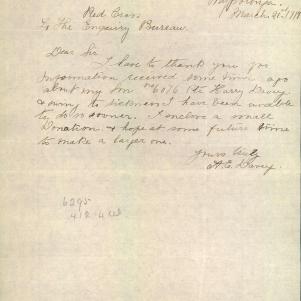 Wypolonga.
March 21st / 18
Red Cross
To the Enquiry Bureau.
Dear Sir
I have to thank you for
Information received some time ago
about my son No 6076 Pte Harry Davey
& owing to sickness I have been unable
to do so sooner. I enclose a small
Donation & hope at some future time
to make a larger one.
Yours truly
A. E. Davey.
6295